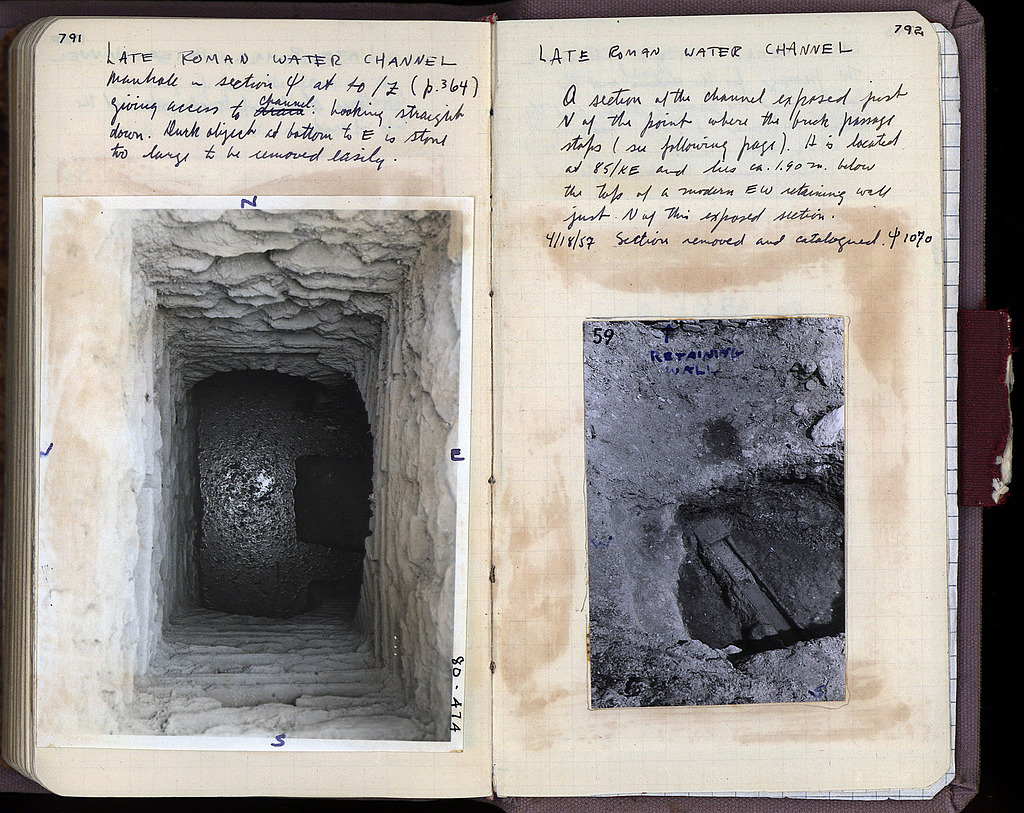 791
LATE ROMAN WATER CHANNEL
Manhole in section Ψ at 70/Z (p.364)
giving access to channel. Looking straight
down. Dark object at bottom to E is stone
too large to be removed easily.
N
E
S
80-474
792
LATE ROMAN WATER CHANNEL
A section of the channel exposed just
N of the point where the brick passage
stops (see following page). It is located
at 85/KE and lies ca. 1.90 m. below
the top of a modern EW retaining wall
just N of this exposed section.
4/18/57 Section removed and catalogued. Ψ 1070
59
RETAINING
WALL